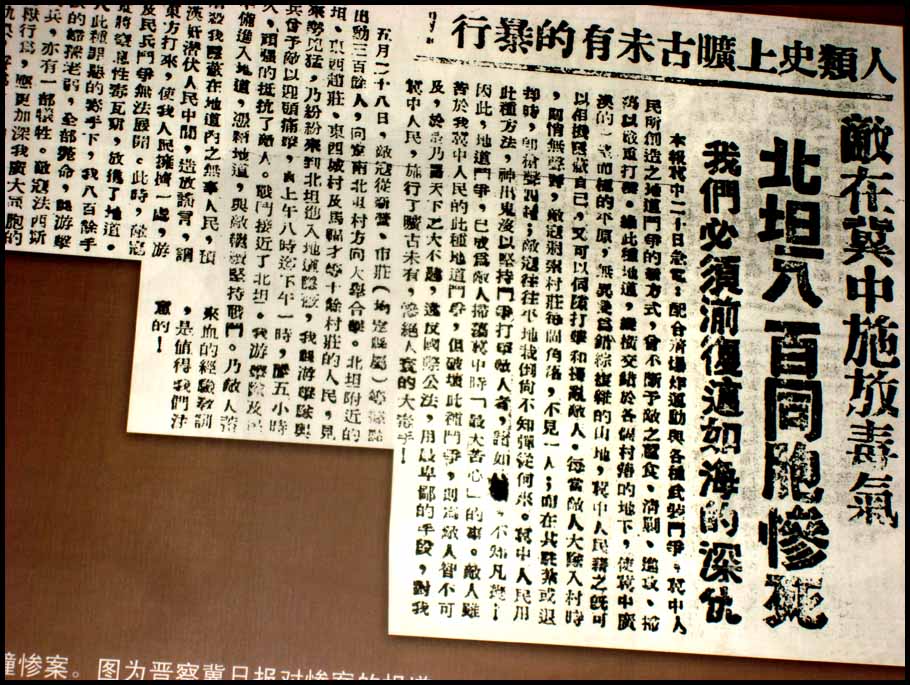 人類史上曠古未有的暴行
敵在冀中施放毒氣
北坦八百同胞慘死
我們必須湔復這如海的深仇
本報冀中二十日急電：配合爆炸運動與各種武裝鬥爭，冀中人
民所創造之地道鬥爭的新方式，曾不斷予敵之蠶食、清剿、進攻、掃
蕩以嚴重打擊。緣此種地道，縱橫交結於各個村落的地下，使冀中廣
漠的一望而極的平原，無異變為錯綜復雜的山地，冀中人民藉之既可
以相機隱蔽自己，又可以伺隙打擊和擾亂敵人。每當敵人大隊入村時
，情無聲響，敵寇洞察村莊每個角落，不見一人；而在其駐紮或退
卻時，則槍聲四起；敵寇往往平地栽倒尚不知彈從何來。冀中人民用
此種方法，神出鬼沒以堅持鬥爭打擊敵人者，諸如，不知凡幾！
因此，地道鬥爭，已成為敵人掃蕩冀中時「最大苦心」的事。敵人雖
苦於我冀中人民的此種地道鬥爭，但破壞此種鬥爭，則為敵人智不可
及，於是乃冒天下之大不韙，違反國際公法，用最卑鄙的手段，對我
冀中人民，施行了曠古未有，慘絕人寰的大毒手！
五月二十八日，敵寇從新營、市莊（均定縣屬）等據點
出動三百餘人，向定南北坦村方向大舉合擊。北坦附近的
坦、東西趙莊、東西城村及馬賴才等十餘村莊的人民，見
來勢兇猛，乃紛紛來到北坦進入地道隱蔽，我縣游擊隊與
兵曾予敵以迎頭痛擊，自上午八時迄下午一時，歷五小時
，頑強的抵抗了敵人。戰鬥接近了北坦。我游擊隊及民
準備進入地道，憑藉地道，與敵繼續堅持戰鬥。乃敵人
我隱蔽在地道內之無辜人民，預
漢奸潛伏人民中間，造放謠言，調
東方打來，使我人民擁擠一處，游
及民兵鬥爭無法展開。此時，敵寇
將窒息性毒瓦斯，放進了地道。
此種罪惡的毒手下，我八百餘手
的婦孺老弱，全部斃命，縣游擊
兵，亦有一部犧牲。敵寇法西斯
獸行為，應更加深我廣大同胞的
來血的經驗教訓
，是值得我們注
意的！
惨案。图为晋察冀日报对惨案的报道